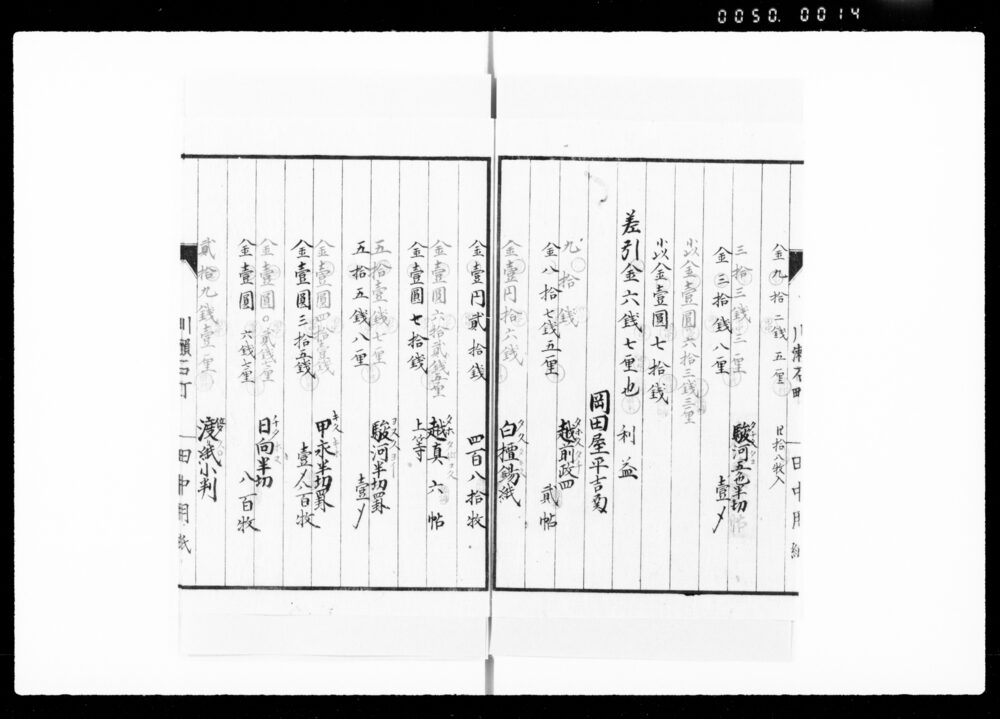 0050. 0014
金九拾二銭五厘 廿拾八牧入
三拾三銭三厘
金三拾銭八厘 駿河五色半切 壹〆
小以金壹圓六拾三銭三厘
小以金壹圓七拾銭
差引金六銭七厘也 利益
岡田屋平吉
九拾銭
金八拾七銭五厘 越前政四 貳帖
金壹円拾六銭 白檀錫紙
金壹円貳拾銭 四百八拾牧
金壹圓六拾貳銭五厘 越真 六帖
金壹圓七拾銭 上等
五拾壹銭七厘 駿河半切罫
五拾五銭八厘 壹〆
金壹圓四拾壹銭 甲永半切罫
金壹圓三拾五銭 壹〆八百牧
金壹圓〇貳銭〇厘 日向半切
金壹圓六銭七厘 八百牧
貳拾九銭壹厘 渡紙小判
川瀬石町 田中用紙